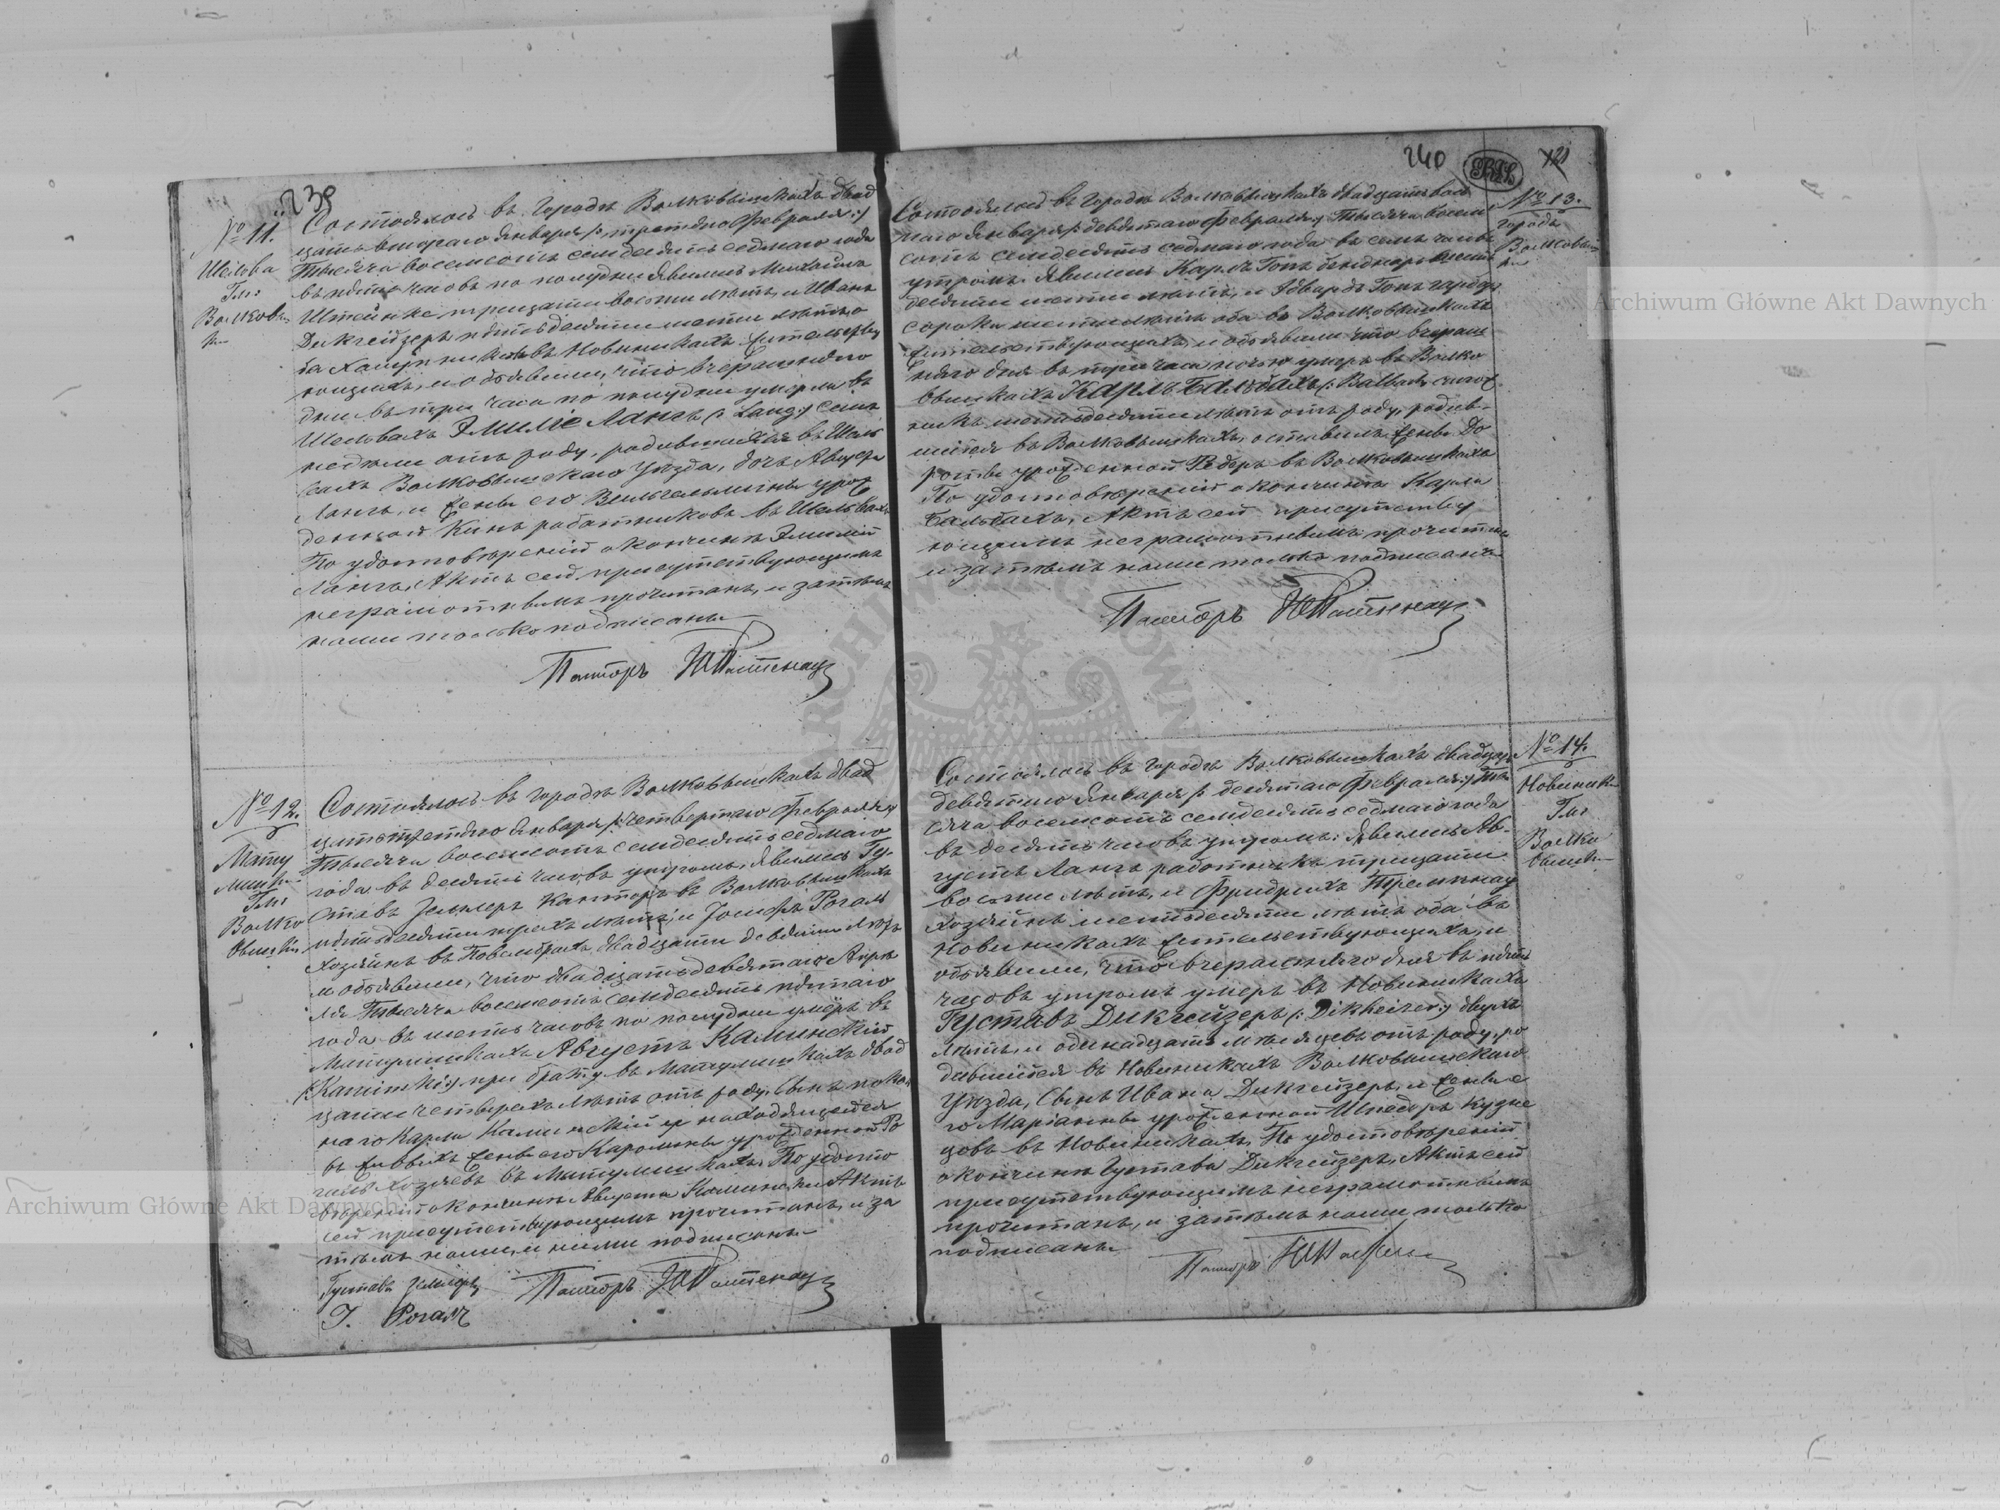 239
№ 11.
Шелова
Гм:
Волков.
Состоялось въ городѣ Волковышкахъ двад
цать втораго Января /: третьяго Февраля :/
Тысяча восемсотъ семдесятъ седмаго года
въ пять часовъ по полудни. Явились Михаилъ
Штейнке тридцати восьми лѣтъ, и Иванъ
Дикгейзеръ пятьдесяти шести лѣтъ, о
ба въ Новиникахъ жительству
ющихъ, и объявили, что вчерашняго
дня въ три часа по полудни умерла въ
Шельвахъ Эмилiе Лангъ (: Lang :) семь
недѣли отъ роду, родившаяся въ Шель
вахъ Волковышскаго Уѣзда, дочь Августа
Лангъ, и жены его Вильгельмины урож
денной Кинъ работниковъ въ Шельвахъ.
По удостовѣренiи о кончинѣ Эмилiи
Лангъ, Актъ сей присутствующимъ
неграмотнымъ прочитанъ, и затѣмъ
нами только подписанъ.
Пасторъ
№ 12.
Мату
лишк.
Гм:
Волко
вышк.
Состоялось въ городѣ Волковышкахъ двад
цать третьяго Января /: четвертаго Февраля :/
Тысяча восемсотъ семдесятъ седмаго
года въ десять часовъ утромъ. Явились Гу-
ставъ Землеръ Канторъ въ Волковышкахъ
пятьдесяти трехъ лѣтъ, и Iосифъ Рогалъ
хозяинъ въ двадцати девяти лѣтъ
и объявили, что двадцать девятаго Апрѣ
ля Тысяча восемсотъ семдесятъ пятаго
года въ шесть часовъ по полудни умеръ въ
Матулишкахъ Августъ Каминскiй
(Kaminski) при братѣ въ Матулишкахъ двад
цати четырехъ лѣтъ отъ роду, сынъ покой
наго Карла Каминскiй и находящейся
въ живыхъ жены его Каролины урожденной Ро
галъ хозяевъ въ Матулишкахъ. По удосто
вѣренiи о кончинѣ Августа Каминскiй Актъ
сей присутствующимъ прочитанъ, и за
тѣмъ нами, и ними подписанъ.
Густавъ Землеръ
Пасторъ
I. Рогалъ
240
121
№ 13.
городъ
Волковыш
ки
Состоялось въ городѣ Волковышкахъ двадцать вось
маго Января /: девятаго Февраля :/ Тысяча восем
сотъ семдесятъ седмаго года въ семь часовъ
утромъ. Явились Карлъ Гопъ шесть
десяти шести лѣтъ, и Эдвардъ Гопъ
сорока шести лѣтъ оба въ Волковышкахъ
жительствующихъ, и объявили что вчераш
няго дня въ три часа ночью умеръ въ Волко
вышкахъ Карлъ Бальбахъ (: Balbach :)
шестьдесяти лѣтъ отъ роду, родив-
шiйся въ Волковышкахъ, оставилъ жену До
роту урожденной въ Волковышкахъ.
По удостовѣренiи о кончинѣ Карла
Бальбахъ, Актъ сей присутству
ющимъ неграмотнымъ прочитанъ
и затѣмъ нами только подписанъ.
Пасторъ
№ 14.
Новиник.
Гм:
Волко
вышк.
Состоялось въ городѣ Волковышкахъ двадцать
девятаго Января /: десятаго Февраля :/ Ты
сяча восемсотъ семдесятъ седмаго года
въ десять часовъ утромъ. Явились Ав-
густъ Лангъ работникъ тридцати
восьми лѣтъ, и Фридрихъ Тремпнау
хозяинъ шестьдесяти лѣтъ оба въ
Новиникахъ жительствующихъ, и
объявили, что вчерашняго дня въ пять
часовъ утромъ умеръ въ Новиникахъ
Густавъ Дикгейзеръ (: Dikheiser :) двухъ
лѣтъ и одинадцать мѣсяцевъ отъ роду, ро
дившiйся въ Новиникахъ Волковышскаго
Уѣзда, сынъ Ивана Дикгейзеръ, и жены е
го Марiанны урожденной Шпедеръ кузне
цовъ въ Новиникахъ. По удостовѣренiи
о кончинѣ Густава Дикгейзеръ, Актъ сей
присутствующимъ неграмотнымъ
прочитанъ, и затѣмъ нами только
подписанъ.
Пасторъ
Archiwum Główne Akt Dawnych
Archiwum Główne Akt Dawnych